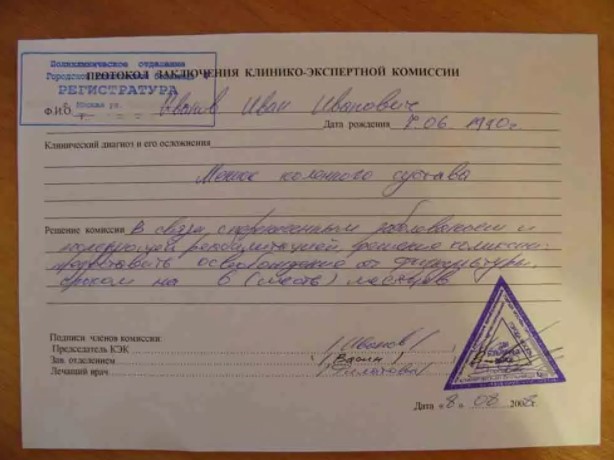 Поликлиническое отделение
Городской
РЕГИСТРАТУРА
Москва ул.
ПРОТОКОЛ ЗАКЛЮЧЕНИЯ КЛИНИКО-ЭКСПЕРТНОЙ КОМИССИИ
Ф.И.О. Иванов Иван Иванович
Дата рождения 7.06.1990г
Клинический диагноз и его осложнения
коленного сустава
Решение комиссии В связи с перенесенным заболеванием и
реабилитацией, решение комиссии:
предоставить освобождение от физкультуры,
сроком на 6 (шесть) месяцев
Подписи членов комиссии:
Председатель КЭК /Иванов/
Зав. отделением (Вдвин)
Лечащий врач /Филатова/
Дата "8" 08 2008г.